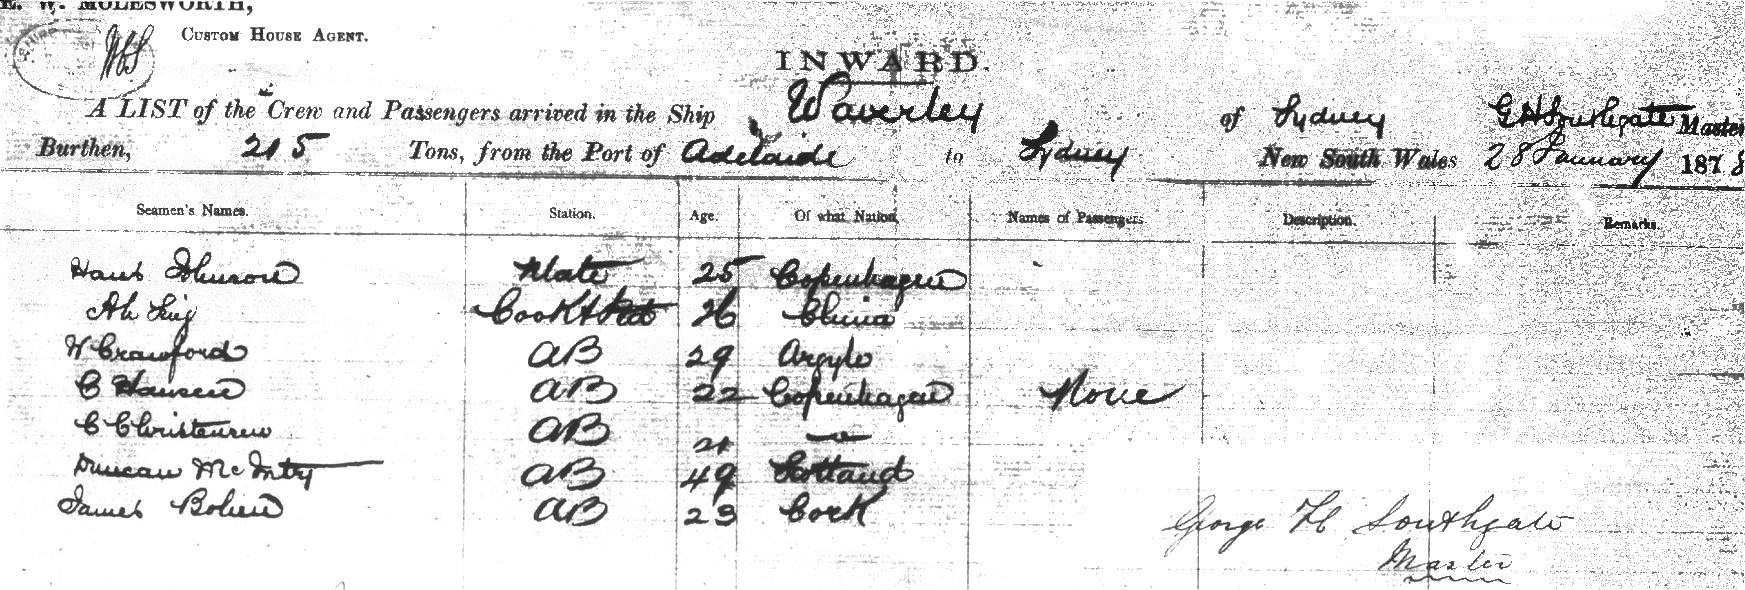 E. W. MOLESWORTH,
CUSTOM HOUSE AGENT.
INWARD.
A LIST of the Crew and Passengers arrived in the Ship Waverley of Sydney G H Southgate Master
Burthen, 215 Tons, from the Port of Adelaide to Sydney New South Wales 28 January 1878
Seamen's Names. Station. Age. Of what Nation. Names of Passengers. Description. Remarks.
Hans Johnson Mate 25 Copenhagen
Ah Ling Cook & 26 China
W Crawford AB 29 Argyle
C Hansen AB 22 Copenhagen None
C Christensen AB 21 "
Duncan McInty AB 49 Scotland
James Bohen AB 23 Cork
George H Southgate
Master